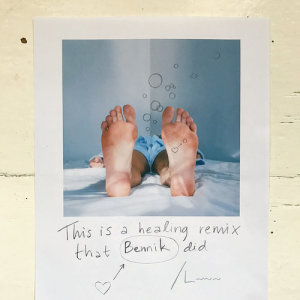 This is a healing remix
that Bennik did